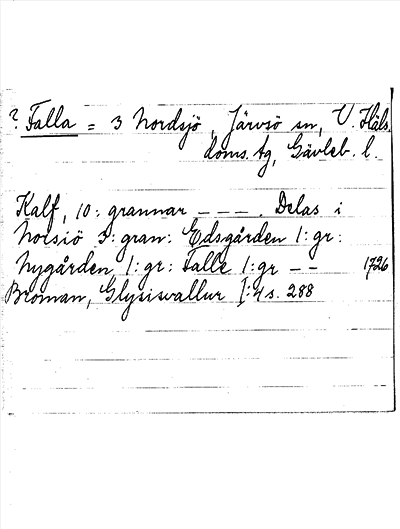 ? Falla = 3 Nordsjö, Järvsö sn, V. Häls.
doms. tg, Gävleb. l.
Kalf, 10: grannar _ _ _ . Delas i
Norsiö 3: gran: Edsgården 1: gr:
Nygården, 1: gr: Falle 1: gr _ _ 1726
Broman, Glysiswallur I: 4 s. 288